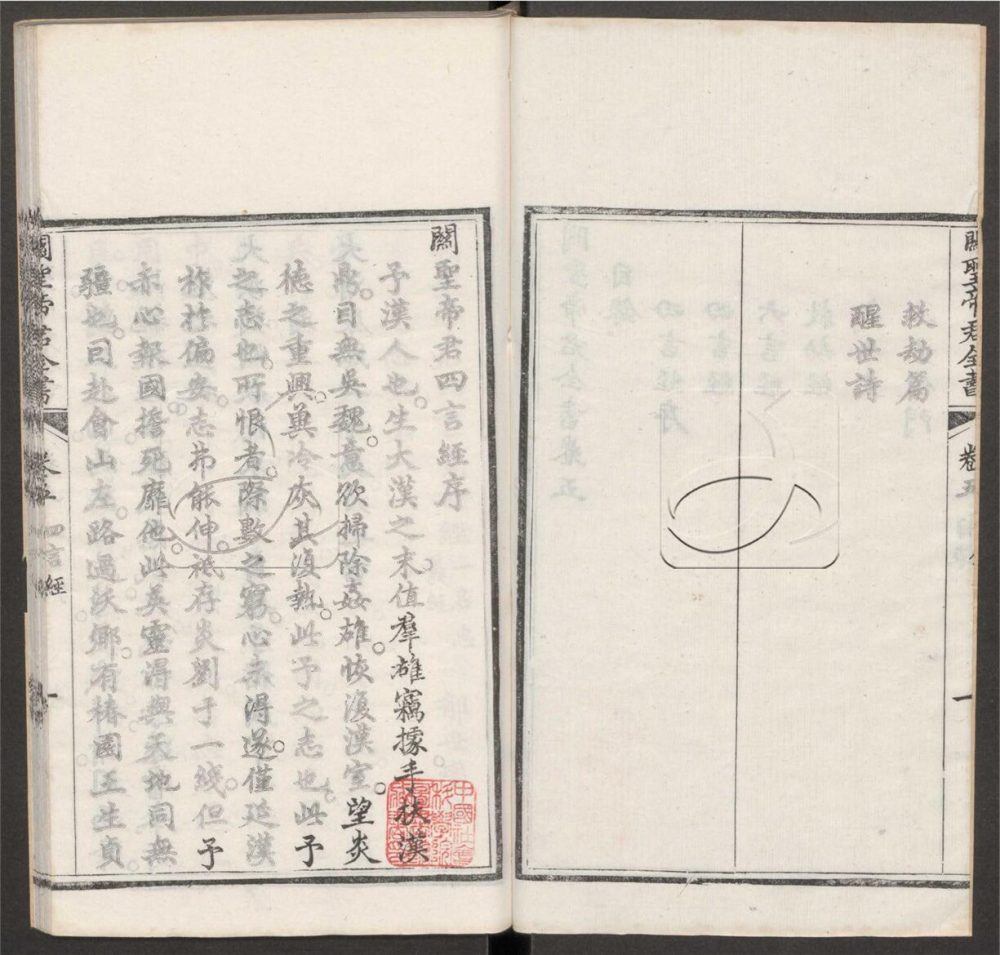 關聖帝君全書 卷五 一
扶劫篇
醒世詩
關聖帝君四言經序
予漢人也生大漢之末值羣雄竊據手扶漢
鼎目無吳魏意欲掃除姦雄恢復漢室望炎
德之重興冀冷灰其復熱此予之志也此予
之志也所恨者際數之窮心未得遂僅延漢
祚於偏安志弗能伸祇存炎劉于一綫但予
赤心報國擔死靡他此英靈得與天地同無
疆也曰赴會山左路過沃鄉有椿園王生貢
關聖帝君全書 卷五 四言經 一